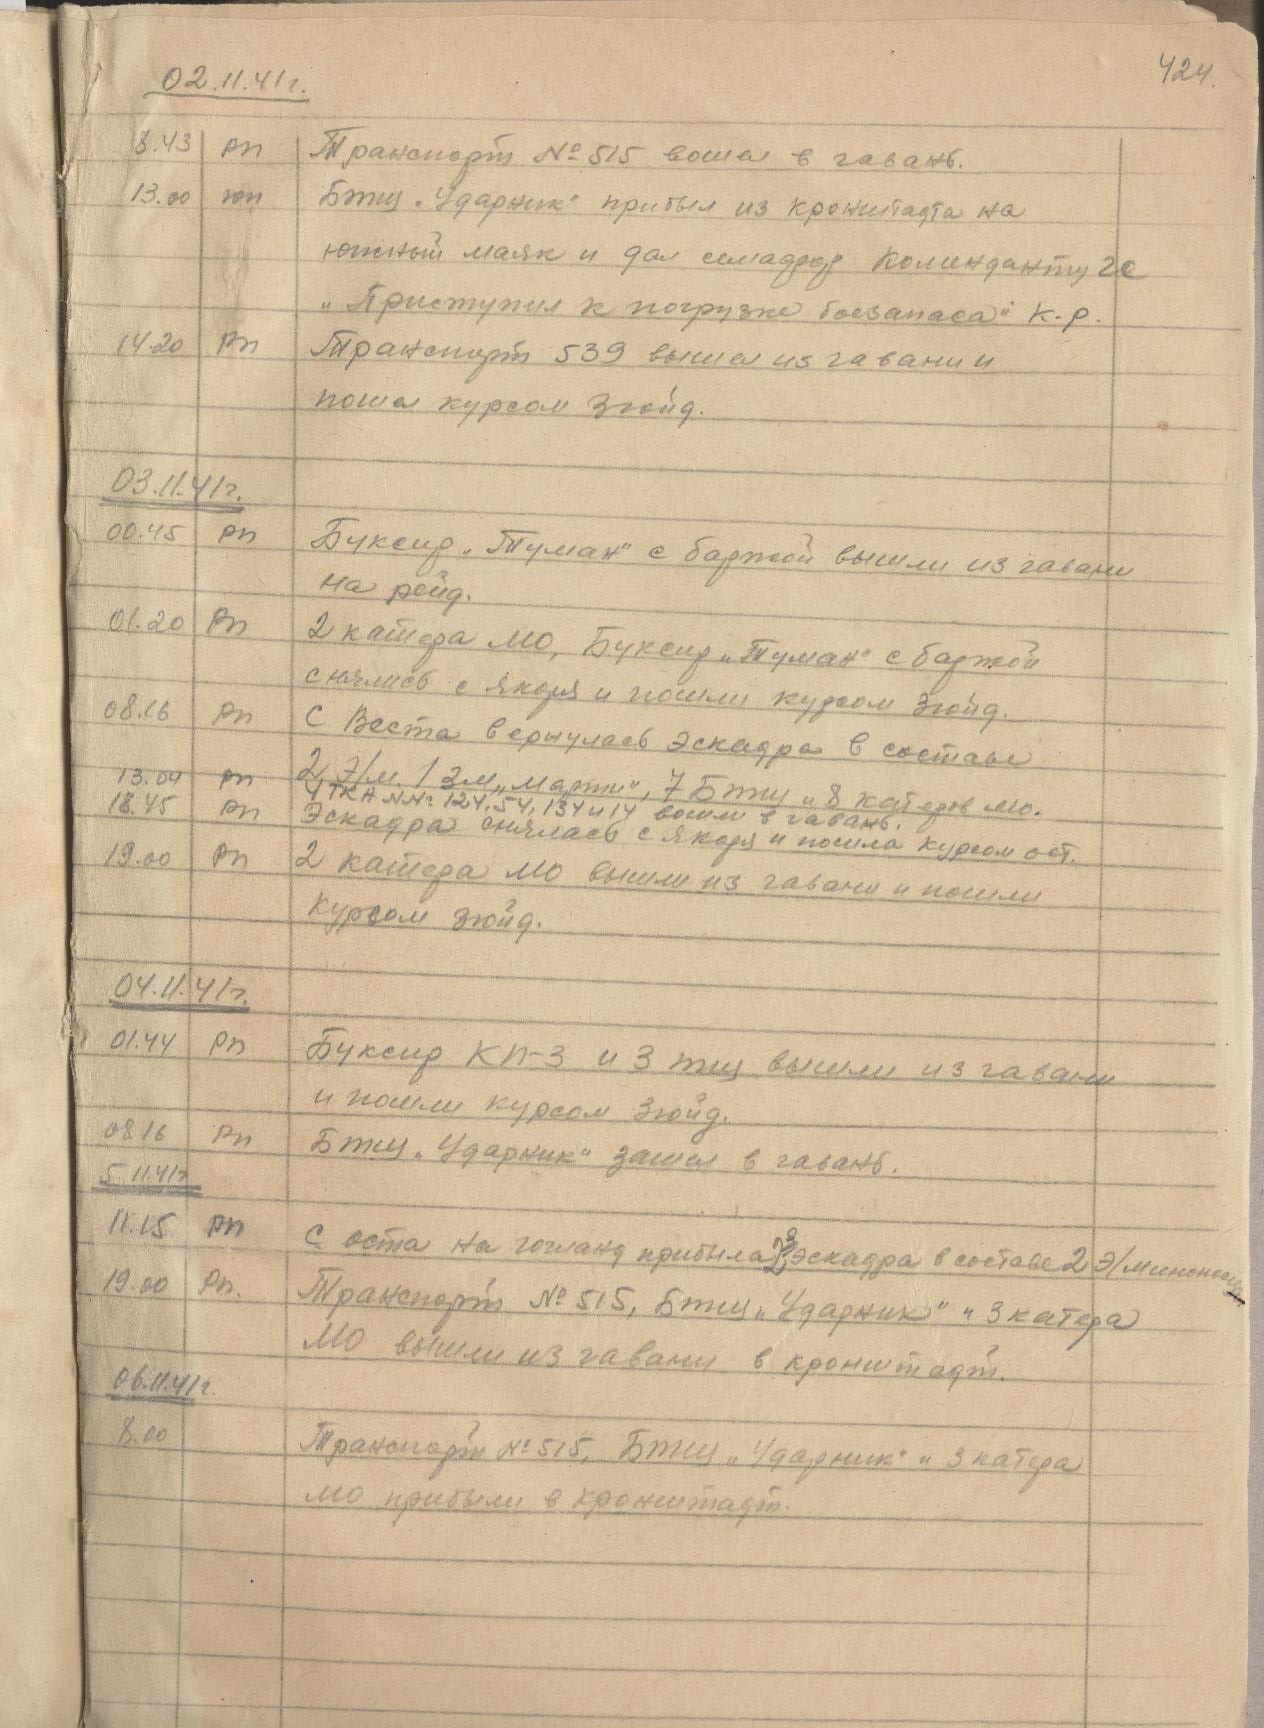 424.
02.11.41г.
8.43 рп Транспорт № 515 вошел в гавань.
13.00 юп БТЩ „Ударник" прибыл из кронштадта на
южный маяк и дал семафор Коменданту
„Приступил к погрузке боезапаса" К-р.
14.20 Рп Транспорт 539 вышел из гавани и
пошел курсом Зюйд.
03.11.41г.
00.45 рп Буксир „Туман" с баржой вышли из гавани
на рейд.
01.20 Рп 2 катера МО, Буксир „Туман" с баржой
снялись с якоря и пошли курсом Зюйд.
08.16 рп С Веста вернулась эскадра в составе
2 Э/м. 1 Зм „Марти", 7 БТЩ и 8 катеров МО.
13.04 рп 4 ТКА №№ 124, 54, 134 и 14 вошли в гавань.
18.45 рп Эскадра снялась с якоря и пошла курсом ост.
19.00 рп 2 катера МО вышли из гавани и пошли
курсом Зюйд.
04.11.41г.
01.44 рп Буксир КП-3 и 3 тщ вышли из гавани
и пошли курсом Зюйд.
08.16 рп БТЩ „Ударник" зашел в гавань.
5.11.41г
11.15 рп С оста на гогланд прибыла эскадра в составе 2 Э/миноносц
19.00 Рп. Транспорт № 515, БТЩ „Ударник" и 3 катера
МО вышли из гавани в кронштадт.
06.11.41г.
8.00 Транспорт № 515, БТЩ „Ударник" и 3 катера
МО прибыли в кронштадт.